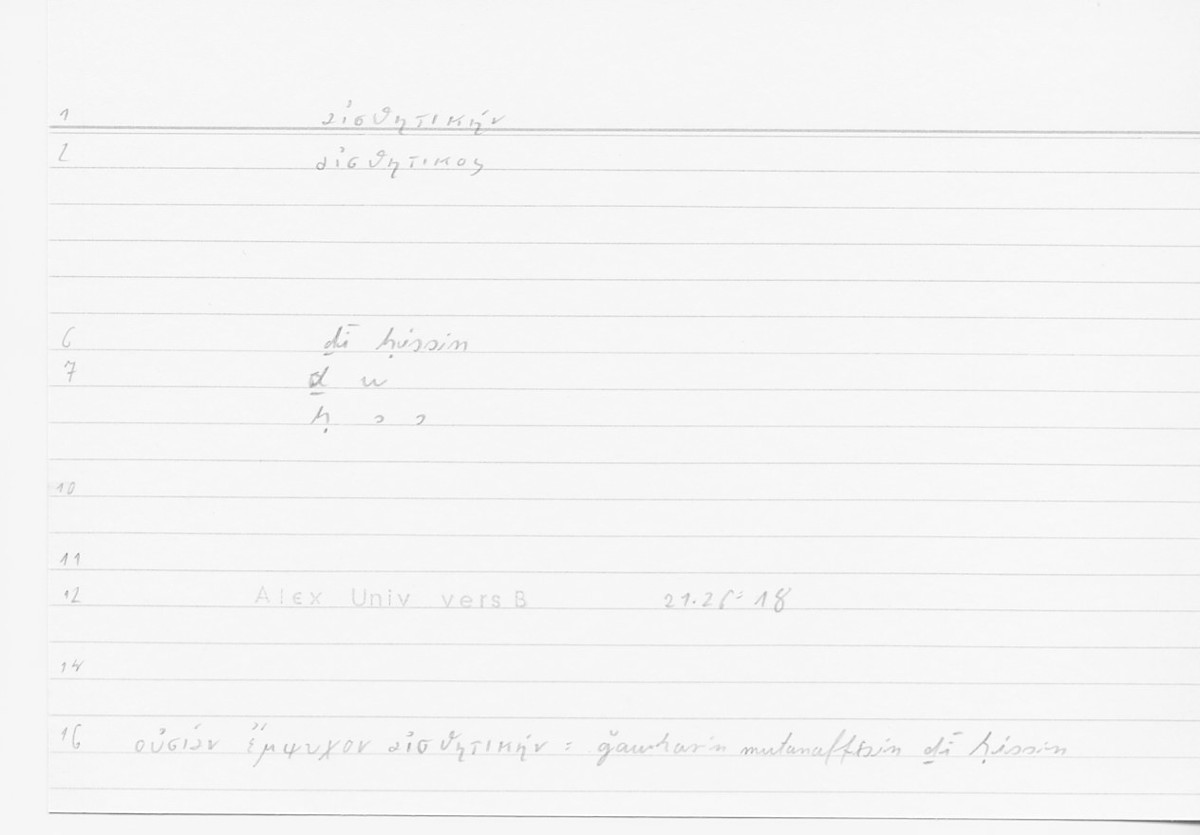 1 αἰσθητικήν
2 αἰσθητικος
6 ḏī ḥissin
7 ḏ w
ḥ s s
10
11
12 Alex Univ vers B 21.26 = 18
14
16 οὐσίαν ἔμψυχον αἰσθητικήν = ǧawharin mutanaffisin ḏī ḥissin